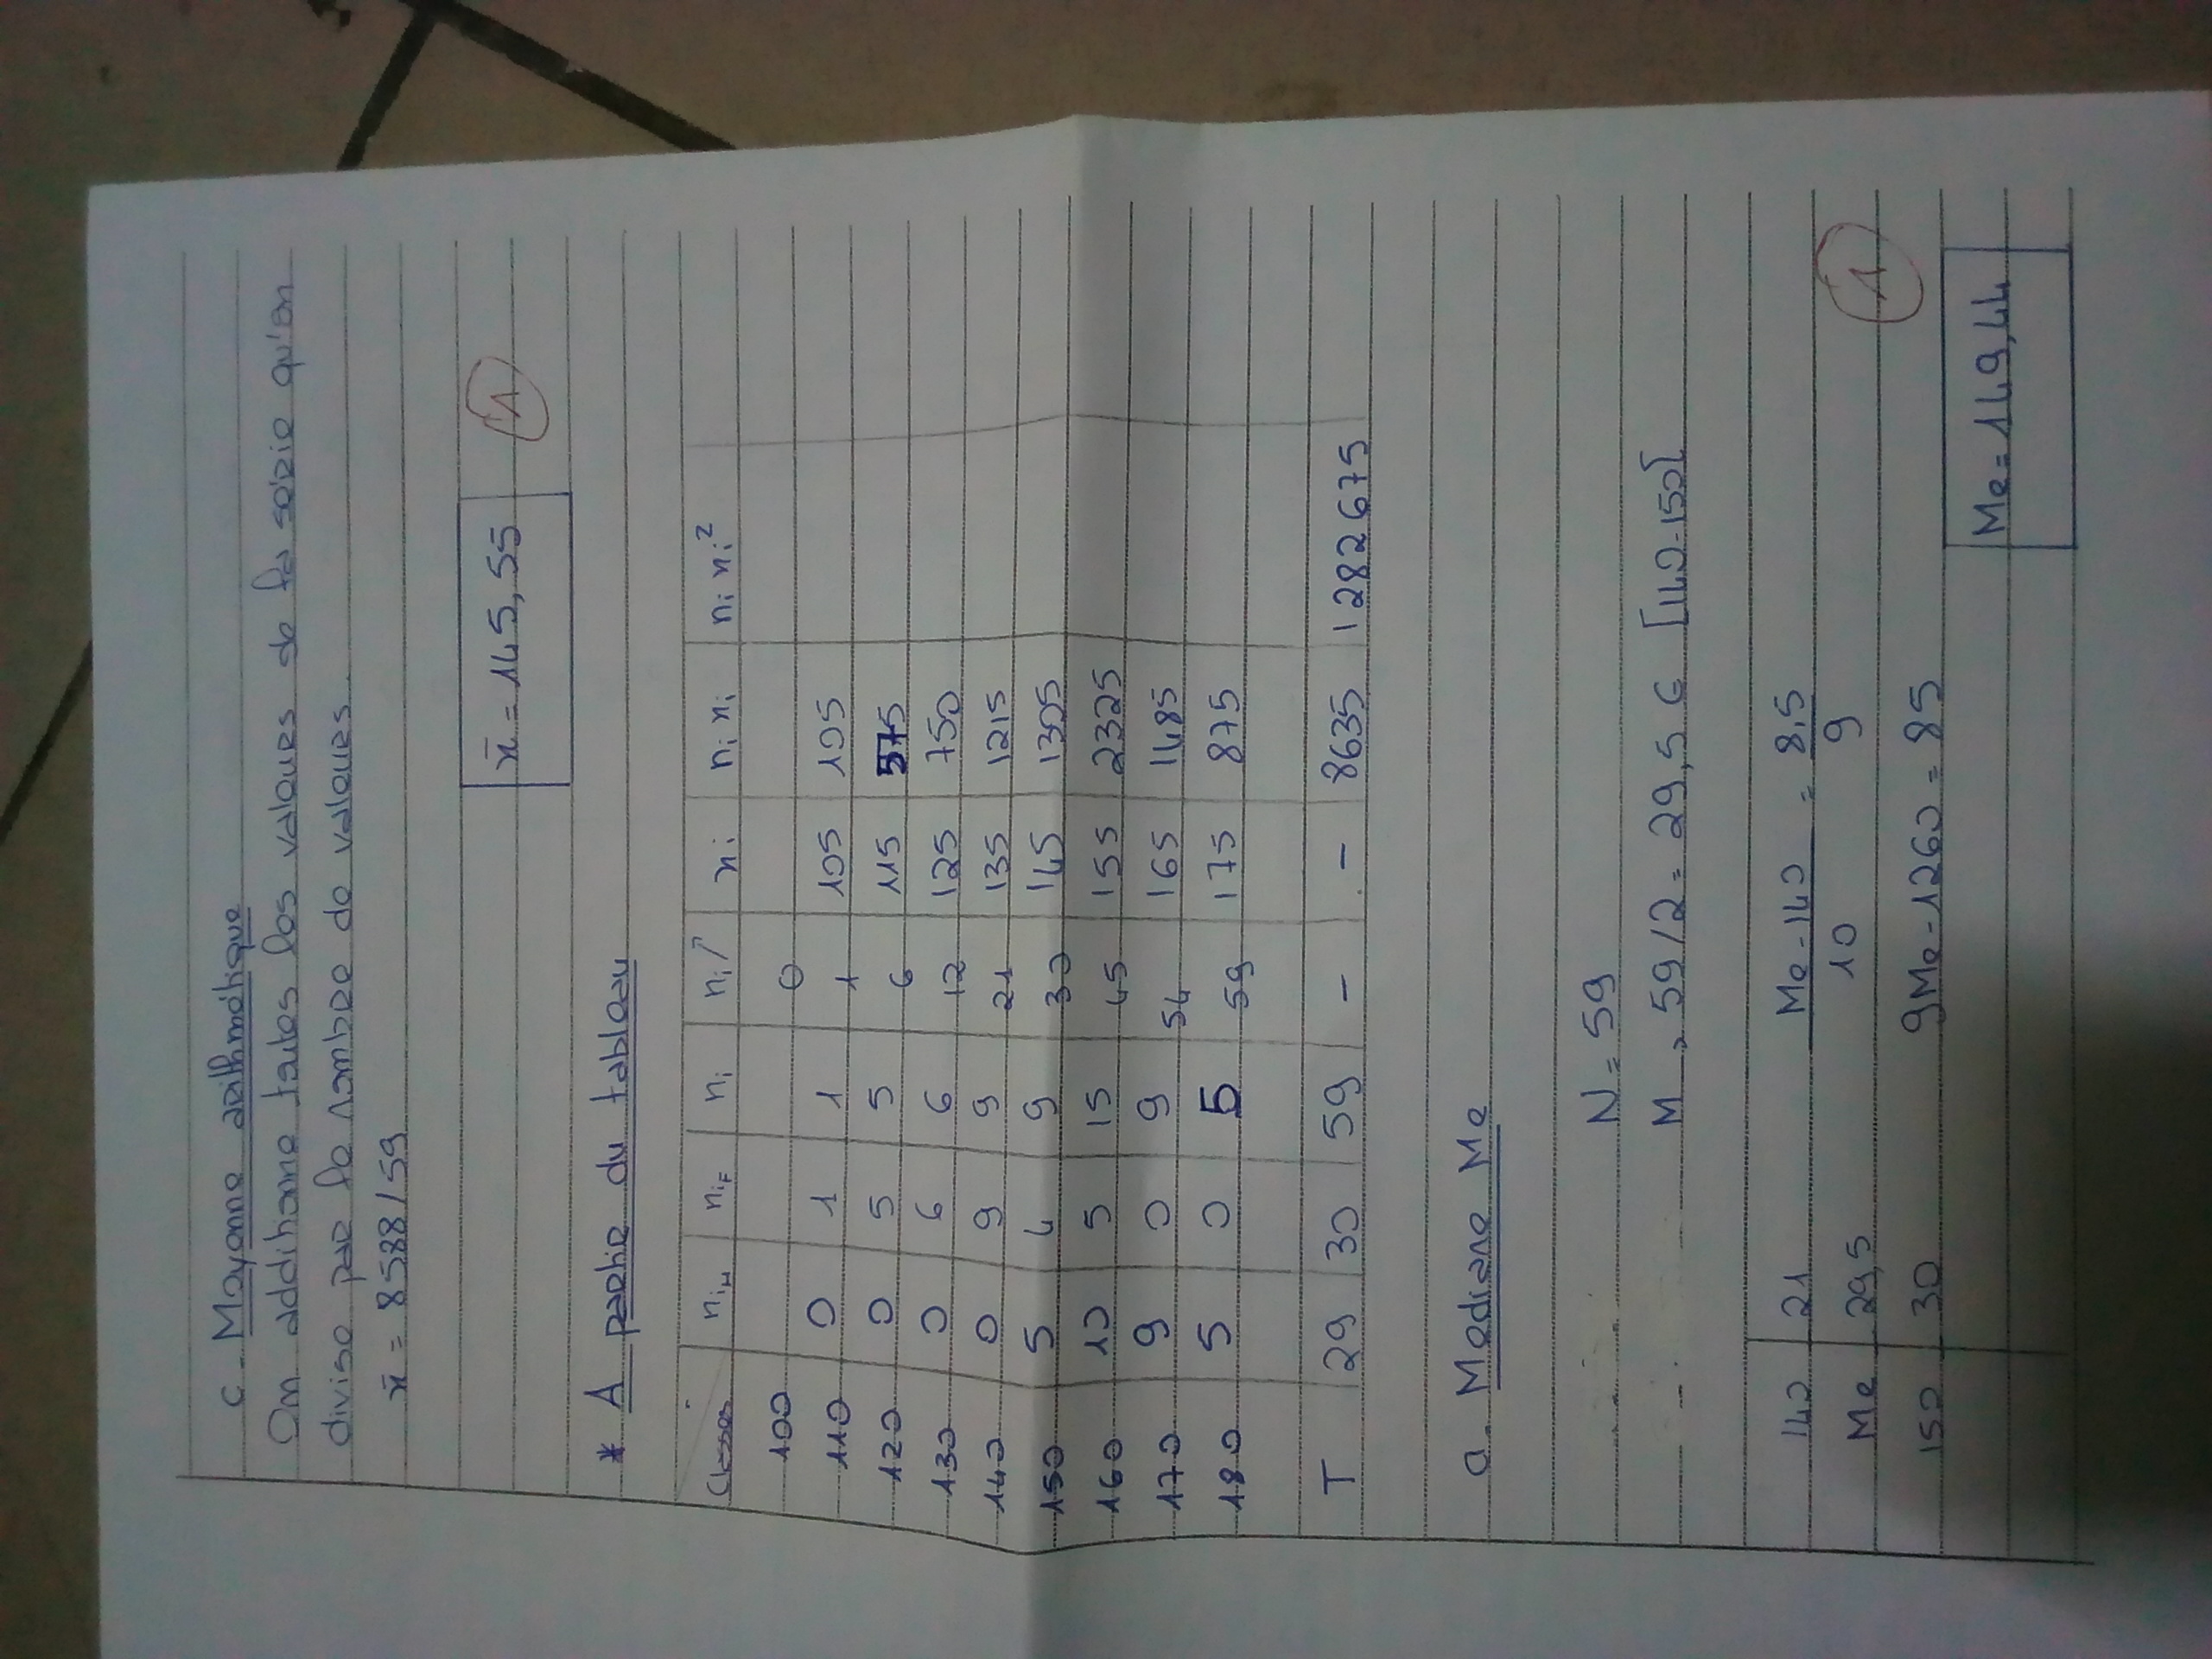 c - Moyenne arithmétique
On additionne toutes les valeurs de la série qu'on
divise par le nombre de valeurs.
x̄ = 8588/59
x̄ = 145,55
1
* A partir du tableau
Classes niH niF ni ni↗ xi ni xi ni xi²
100 0
110 0 1 1 1 105 105
120 0 5 5 6 115 575
130 0 6 6 12 125 750
140 0 9 9 21 135 1215
150 5 4 9 30 145 1305
160 10 5 15 45 155 2325
170 9 0 9 54 165 1485
180 5 0 5 59 175 875
T 29 30 59 - - 8635 1282675
a - Mediane Me
N = 59
M → 59/2 = 29,5 ∈ [140-150[
140 21 Me - 140 / 10 = 8,5 / 9
Me 29,5
1
150 30 9Me - 1260 = 85
Me = 149,44